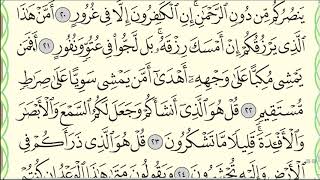 يَنصُرُكُم مِّن دُونِ ٱلرَّحْمَٰنِ ۚ إِنِ ٱلْكَٰفِرُونَ إِلَّا فِى غُرُورٍ ٢٠ أَمَّنْ هَٰذَا
ٱلَّذِى يَرْزُقُكُمْ إِنْ أَمْسَكَ رِزْقَهُۥ ۚ بَل لَّجُّوا۟ فِى عُتُوٍّ وَنُفُورٍ ٢١ أَفَمَن
يَمْشِى مُكِبًّا عَلَىٰ وَجْهِهِۦٓ أَهْدَىٰٓ أَمَّن يَمْشِى سَوِيًّا عَلَىٰ صِرَٰطٍ
مُّسْتَقِيمٍ ٢٢ قُلْ هُوَ ٱلَّذِىٓ أَنشَأَكُمْ وَجَعَلَ لَكُمُ ٱلسَّمْعَ وَٱلْأَبْصَٰرَ
وَٱلْأَفْـِٔدَةَ ۖ قَلِيلًا مَّا تَشْكُرُونَ ٢٣ قُلْ هُوَ ٱلَّذِى ذَرَأَكُمْ فِى
ٱلْأَرْضِ وَإِلَيْهِ تُحْشَرُونَ ٢٤ وَيَقُولُونَ مَتَىٰ هَٰذَا ٱلْوَعْدُ إِن كُنتُمْ